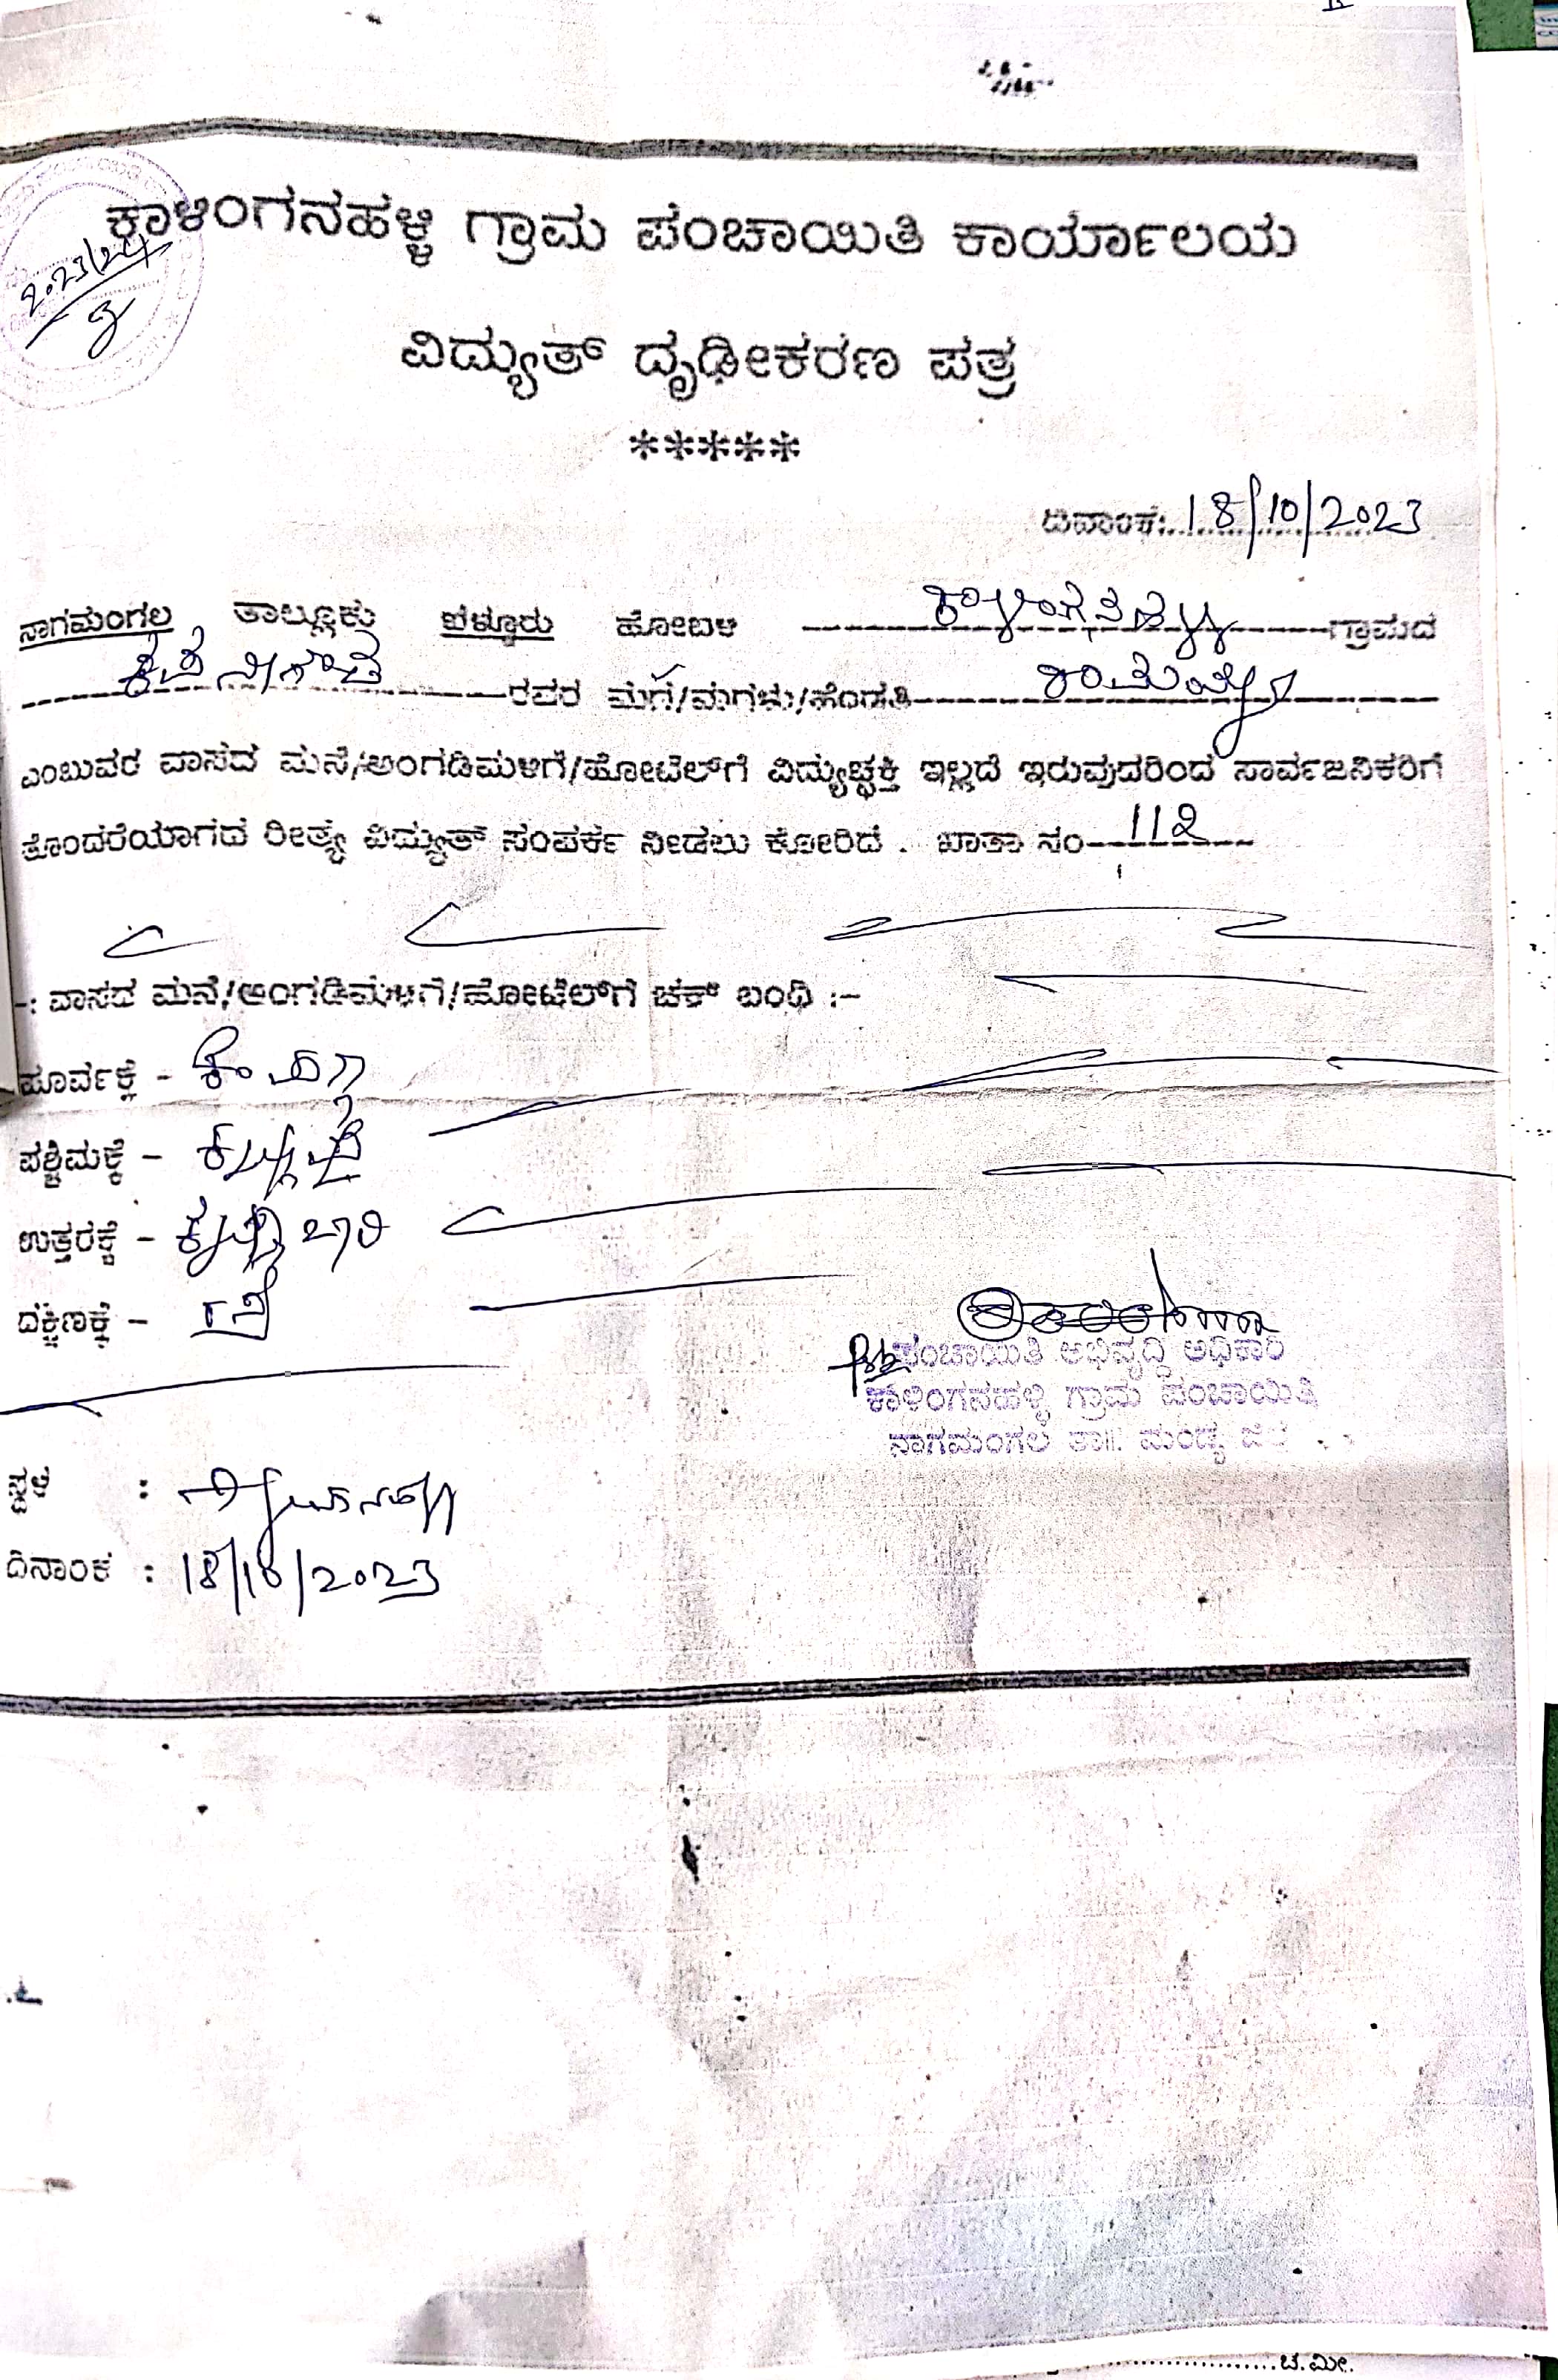 ಕಾಳಿಂಗನಹಳ್ಳಿ ಗ್ರಾಮ ಪಂಚಾಯಿತಿ ಕಾರ್ಯಾಲಯ
2023/24
ವಿದ್ಯುತ್ ದೃಢೀಕರಣ ಪತ್ರ
*****
ದಿನಾಂಕ: 18/10/2023
ನಾಗಮಂಗಲ ತಾಲ್ಲೂಕು ಬೆಳ್ಳೂರು ಹೋಬಳಿ ಕಾಳಿಂಗನಹಳ್ಳಿ ಗ್ರಾಮದ
ರವರ ಮಗ/ಮಗಳು/ಹೆಂಡತಿ
ಎಂಬುವರ ವಾಸದ ಮನೆ/ಅಂಗಡಿಮಳಿಗೆ/ಹೋಟೆಲ್‌ಗೆ ವಿದ್ಯುಚ್ಛಕ್ತಿ ಇಲ್ಲದೆ ಇರುವುದರಿಂದ ಸಾರ್ವಜನಿಕರಿಗೆ
ತೊಂದರೆಯಾಗದ ರೀತ್ಯ ವಿದ್ಯುತ್ ಸಂಪರ್ಕ ನೀಡಲು ಕೋರಿದೆ . ಖಾತಾ ನಂ 112
-: ವಾಸದ ಮನೆ/ಅಂಗಡಿಮಳಿಗೆ/ಹೋಟೆಲ್‌ಗೆ ಚಕ್ ಬಂಧಿ :-
ಪೂರ್ವಕ್ಕೆ -
ಪಶ್ಚಿಮಕ್ಕೆ -
ಉತ್ತರಕ್ಕೆ -
ದಕ್ಷಿಣಕ್ಕೆ - ರಸ್ತೆ
ಪಂಚಾಯಿತಿ ಅಭಿವೃದ್ಧಿ ಅಧಿಕಾರಿ
ಕಾಳಿಂಗನಹಳ್ಳಿ ಗ್ರಾಮ ಪಂಚಾಯಿತಿ
ನಾಗಮಂಗಲ ತಾ||. ಮಂಡ್ಯ ಜಿಲ್ಲೆ
ಸ್ಥಳ :
ದಿನಾಂಕ : 18/10/2023
ಚ.ಮೀ.